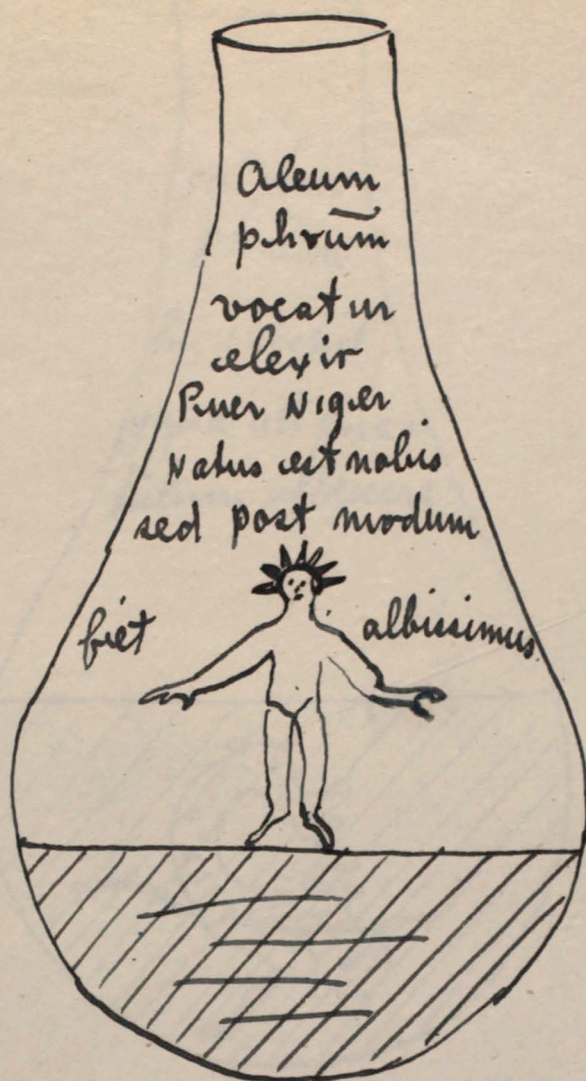 Oleum
phrum̄
vocatur
elexir
Puer Niger
Natus est nobis
sed post modum
fiet albissimus